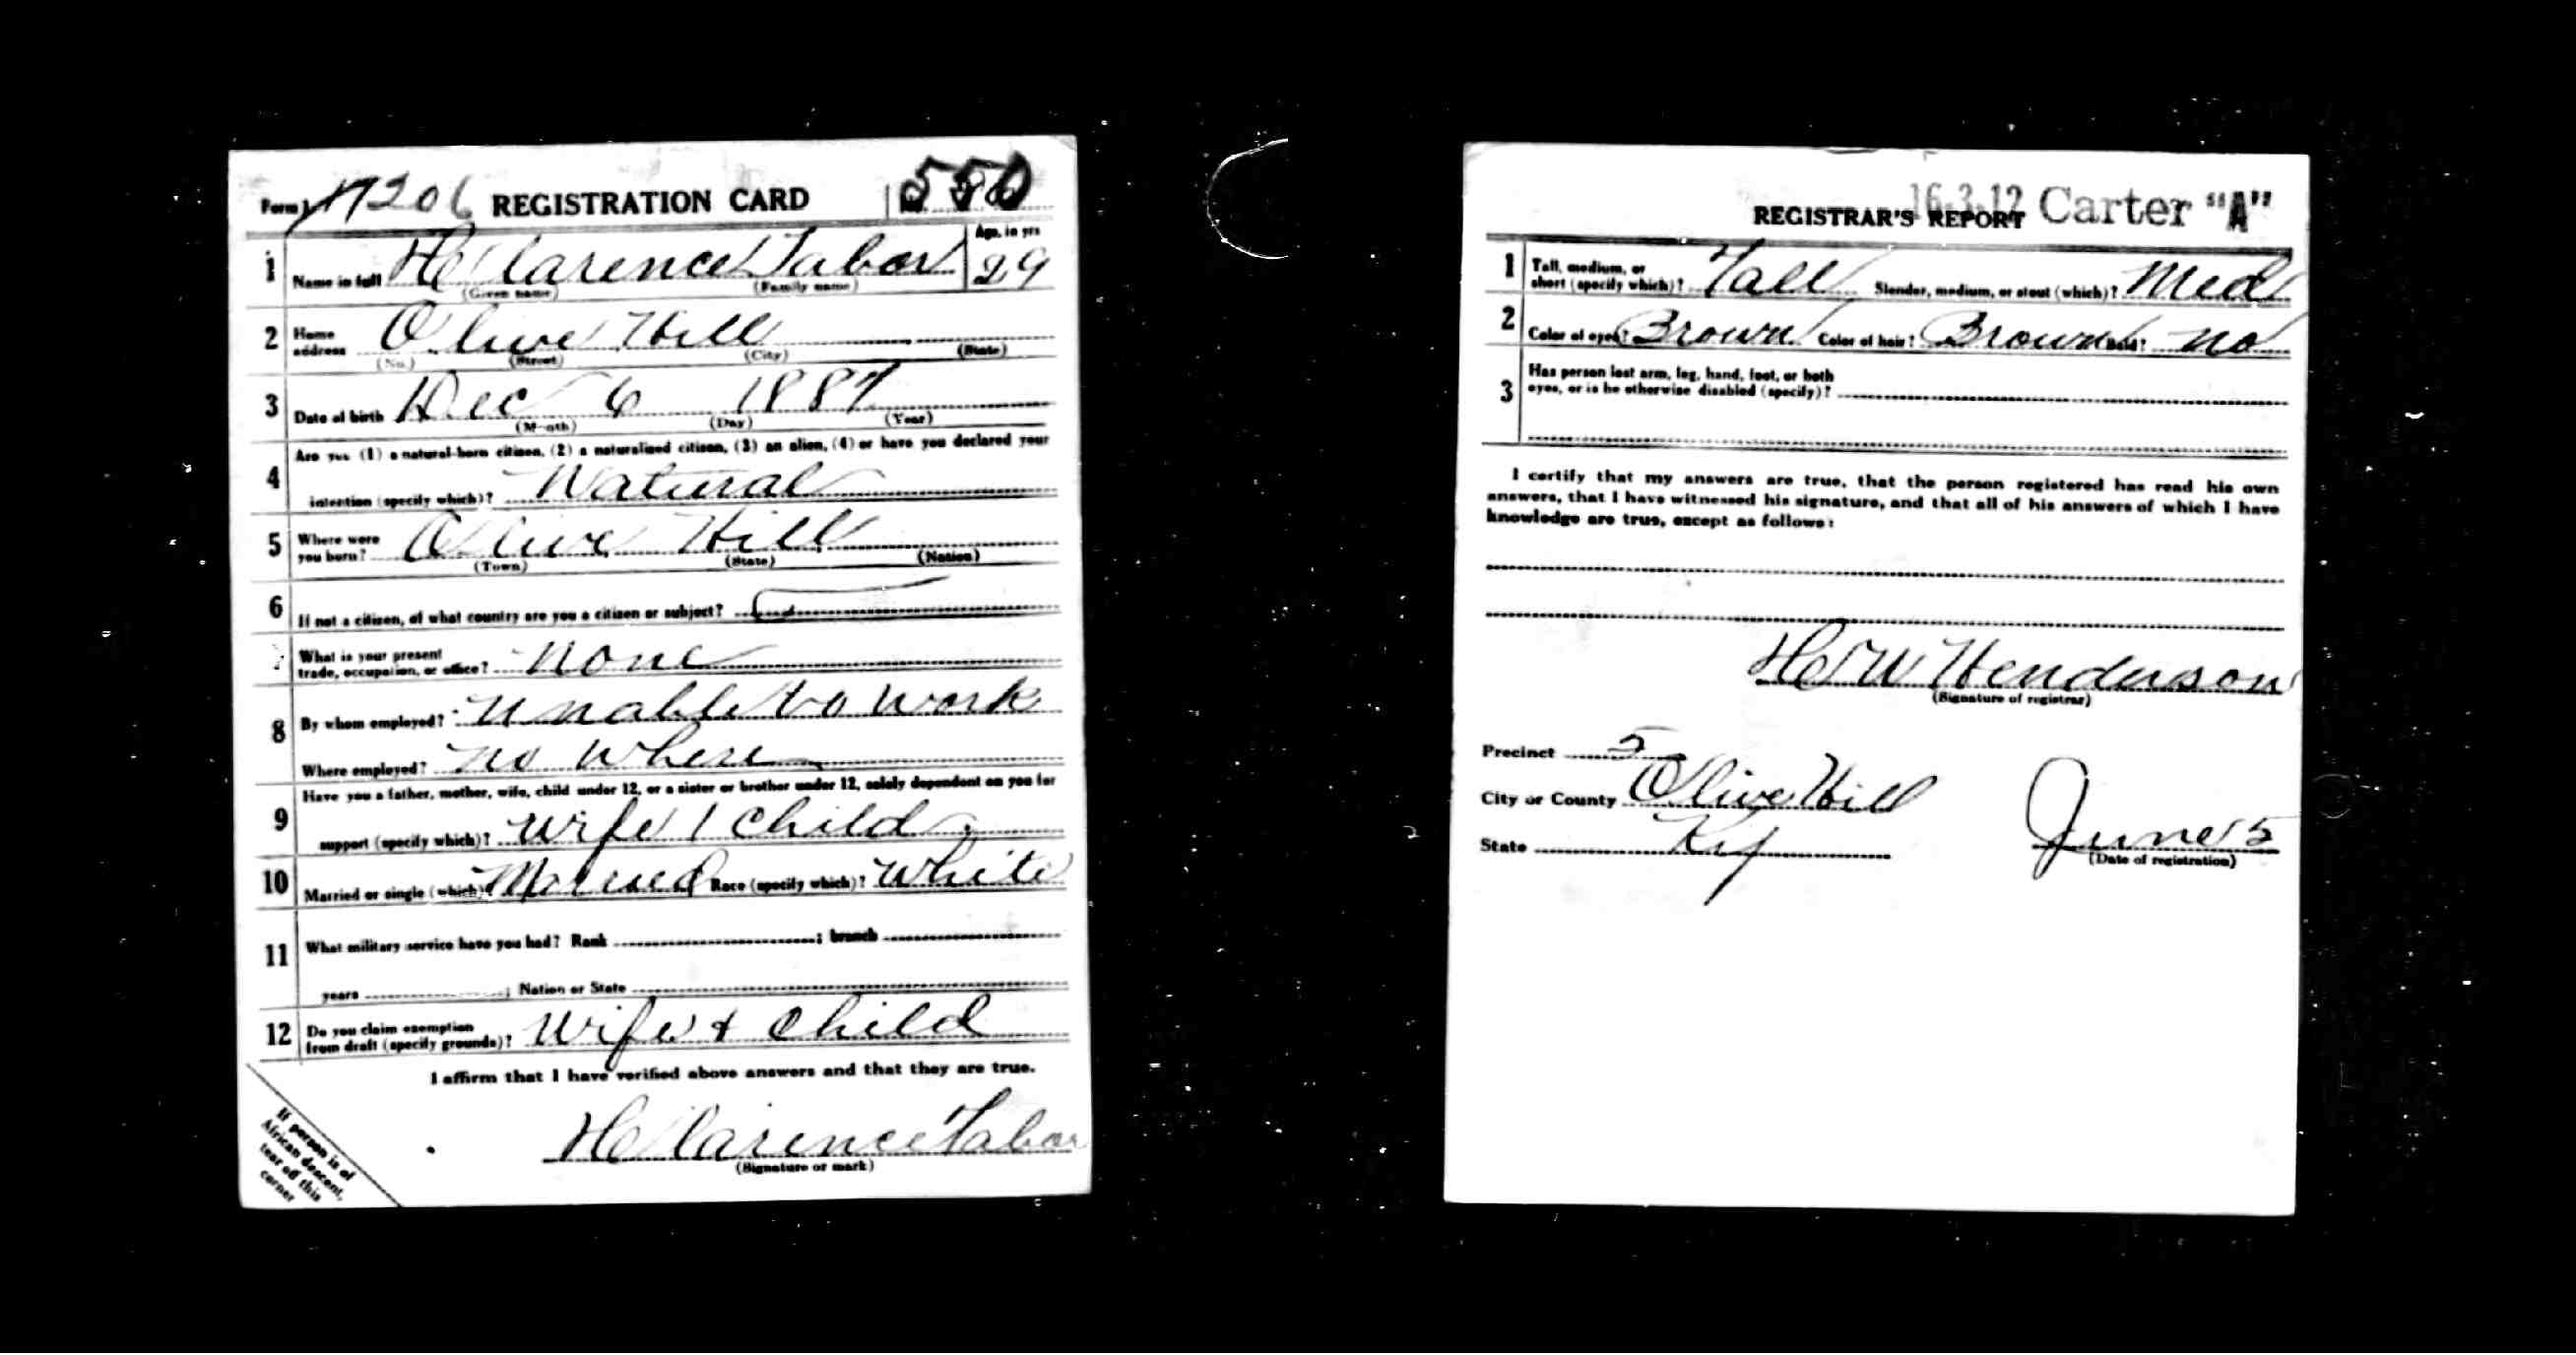 Form 1 17206 REGISTRATION CARD No. 550
1 Name in full H Clarence Tabor Age, in yrs 29
(Given name) (Family name)
2 Home address Olive Hill
(No.) (Street) (City) (State)
3 Date of birth Dec 6 1887
(Month) (Day) (Year)
Are you (1) a natural-born citizen, (2) a naturalized citizen, (3) an alien, (4) or have you declared your
4 intention (specify which)? Natural
5 Where were you born? Olive Hill
(Town) (State) (Nation)
6 If not a citizen, of what country are you a citizen or subject?
7 What is your present trade, occupation, or office? None
8 By whom employed? Unable to work
Where employed? No Where
Have you a father, mother, wife, child under 12, or a sister or brother under 12, solely dependent on you for
9 support (specify which)? Wife 1 Child
10 Married or single (which)? Married Race (specify which)? White
11 What military service have you had? Rank ; branch
years ; Nation or State
12 Do you claim exemption from draft (specify grounds)? Wife & Child
I affirm that I have verified above answers and that they are true.
H Clarence Tabor
(Signature or mark)
If person is of
African descent,
tear off this
corner
16-3-12 Carter "A"
REGISTRAR'S REPORT
1 Tall, medium, or short (specify which)? Tall Slender, medium, or stout (which)? Med
2 Color of eyes? Brown Color of hair? Brown Bald? no
3 Has person lost arm, leg, hand, foot, or both
eyes, or is he otherwise disabled (specify)?
I certify that my answers are true, that the person registered has read his own
answers, that I have witnessed his signature, and that all of his answers of which I have
knowledge are true, except as follows:
H W Henderson
(Signature of registrar)
Precinct 5
City or County Olive Hill
State Ky
June 5
(Date of registration)